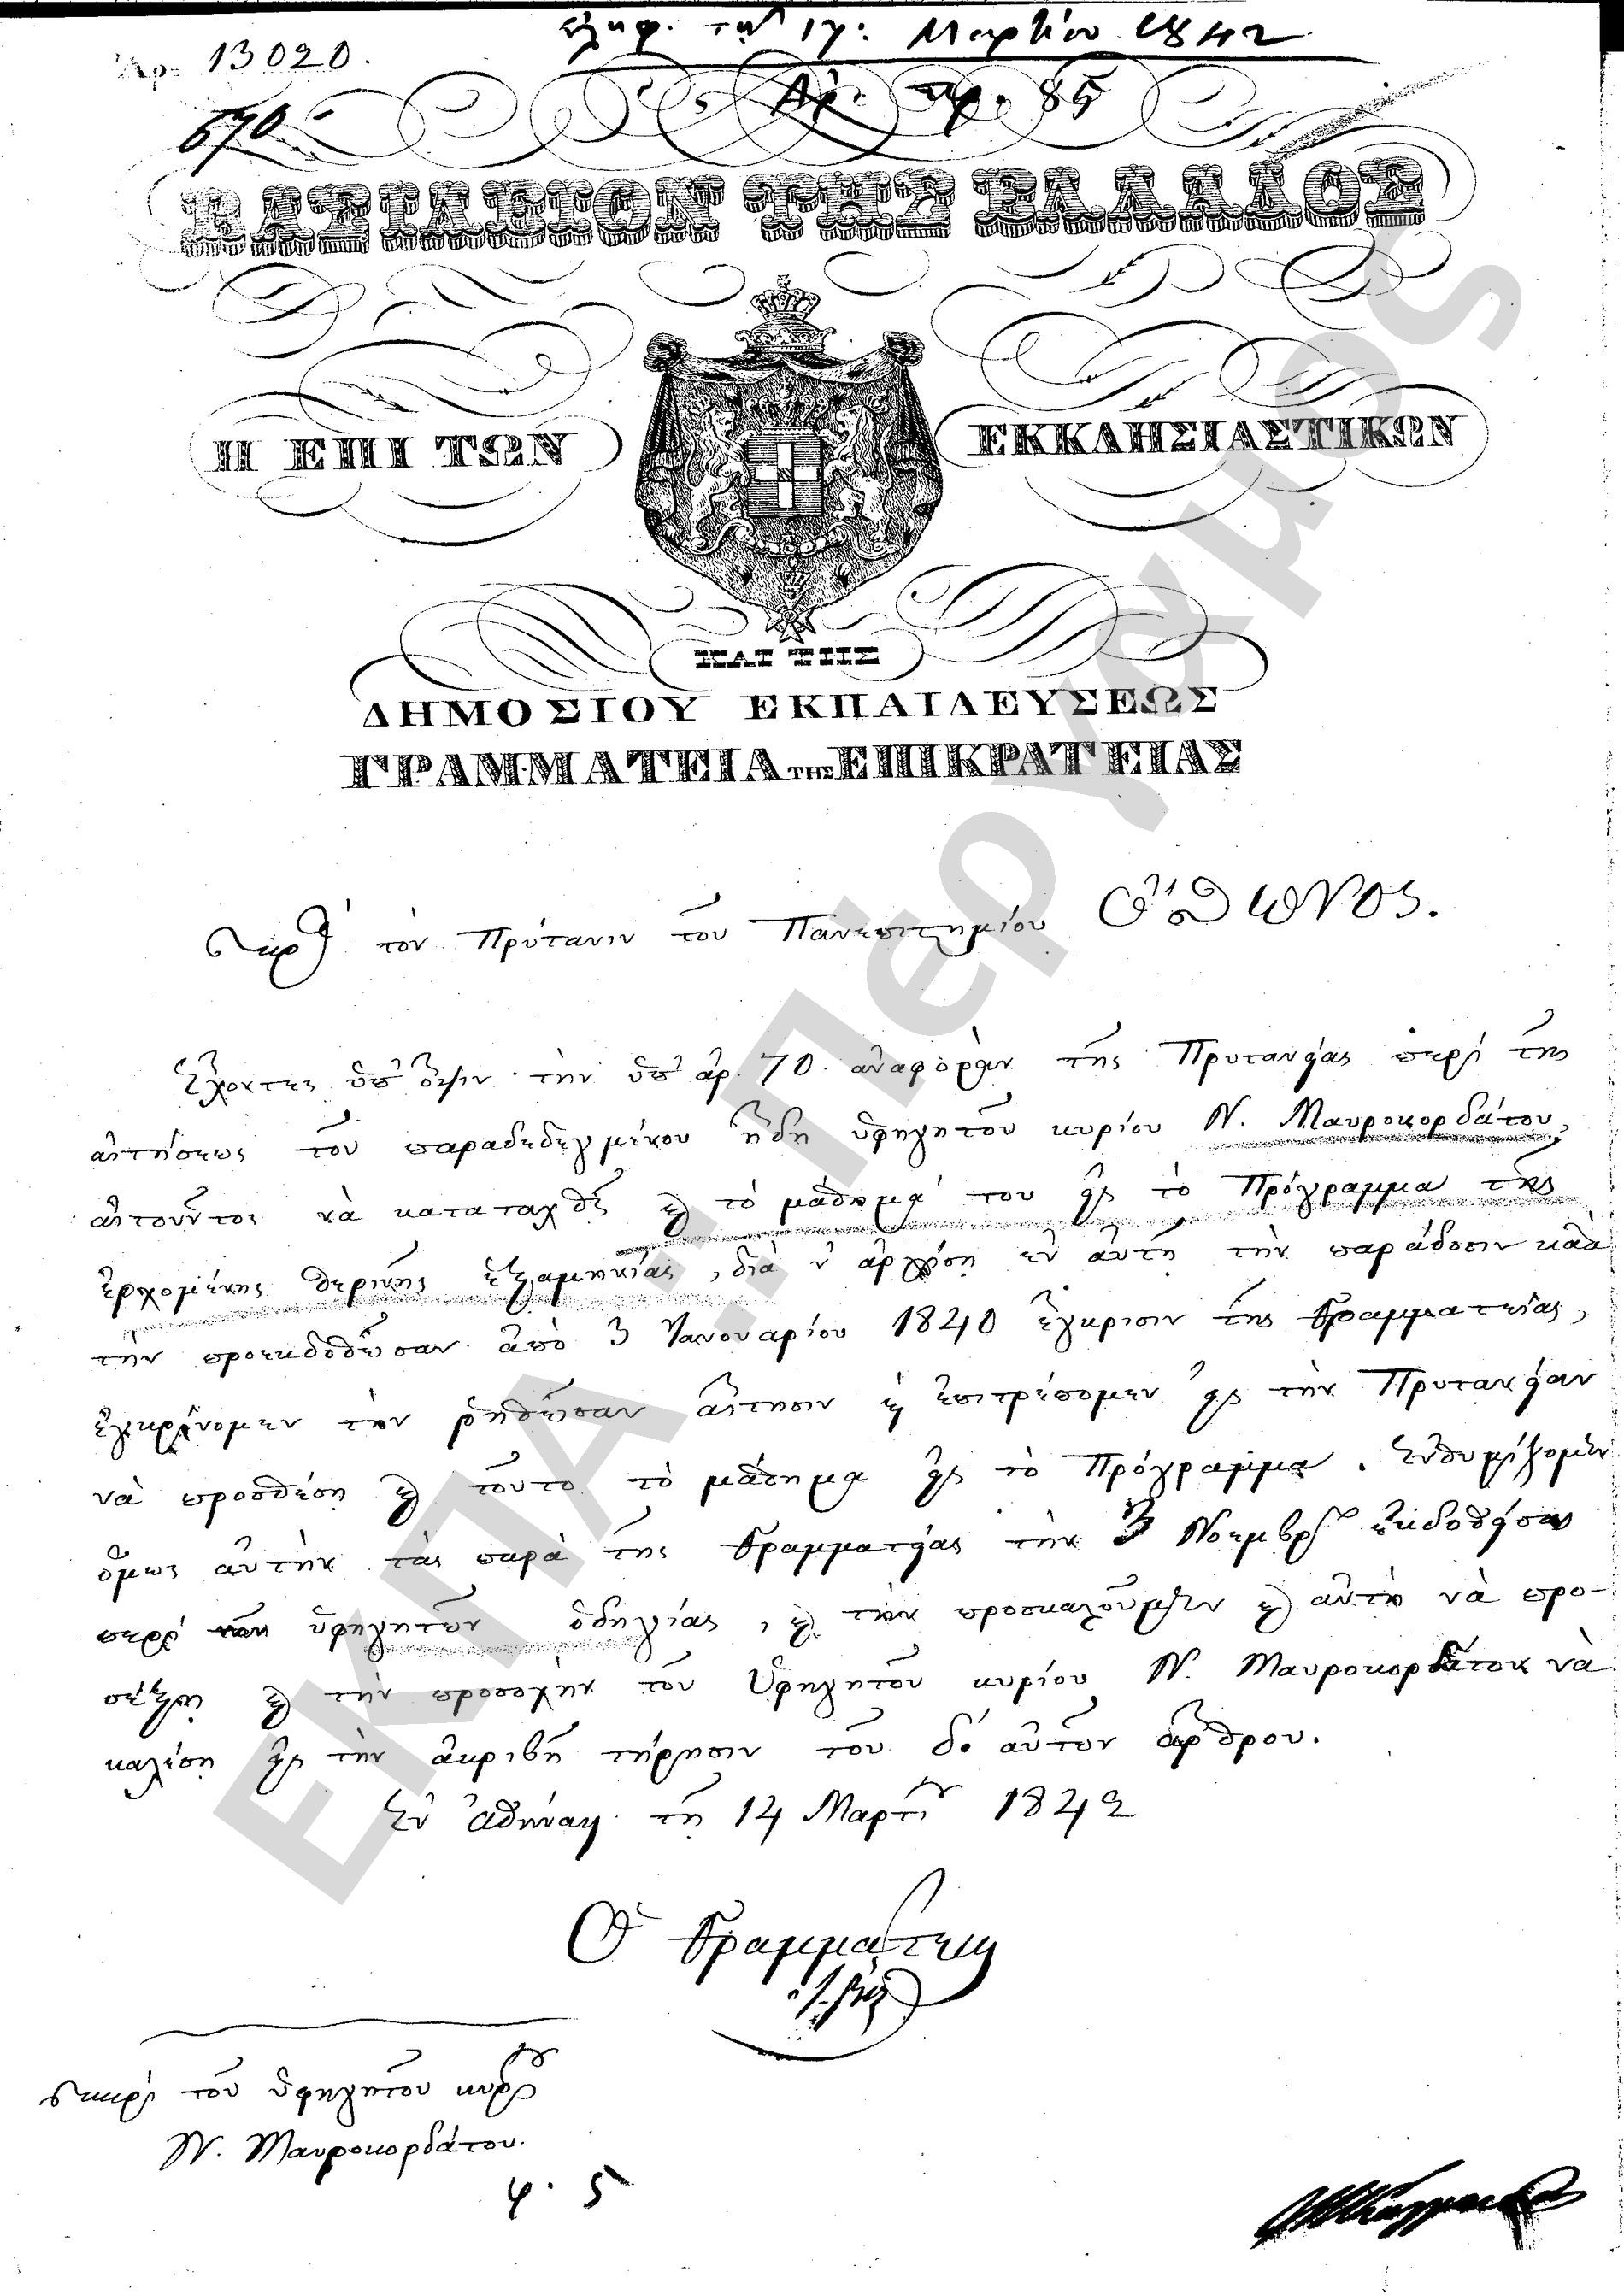 ἐλήφ. τῇ 17: Μαρτίου 1842
Ἀρ. 13020.
Ἀρ. πρ. 85
670
ΒΑΣΙΛΕΙΟΝ ΤΗΣ ΕΛΛΑΔΟΣ
Η ΕΠΙ ΤΩΝ ΕΚΚΛΗΣΙΑΣΤΙΚΩΝ
ΚΑΙ ΤΗΣ
ΔΗΜΟΣΙΟΥ ΕΚΠΑΙΔΕΥΣΕΩΣ
ΓΡΑΜΜΑΤΕΙΑ ΤΗΣ ΕΠΙΚΡΑΤΕΙΑΣ
τὸν Πρύτανιν τοῦ Πανεπιστημίου Ὄθωνος.
Ἔχοντες ὑπ' ὄψιν τὴν ὑπ' ἀρ. 70. ἀναφορὰν τῆς Πρυτανείας περὶ τῆς
αἰτήσεως τοῦ παραδεδεγμένου ἤδη ὑφηγητοῦ κυρίου Ν. Μαυροκορδάτου,
αἰτοῦντος νὰ καταταχθῇ καὶ τὸ μάθημά του εἰς τὸ Πρόγραμμα τῆς
ἐρχομένης θερινῆς ἑξαμηνίας, διὰ ν' ἀρχίσῃ ἐν αὐτῇ τὴν παράδοσιν κατὰ
τὴν προεκδοθεῖσαν ἀπὸ 3 Ἰανουαρίου 1840 ἔγκρισιν τῆς Γραμματείας,
ἐγκρίνομεν τὴν ῥηθεῖσαν αἴτησιν καὶ ἐπιτρέπομεν εἰς τὴν Πρυτανείαν
νὰ προσθέσῃ καὶ τοῦτο τὸ μάθημα εἰς τὸ Πρόγραμμα. Ἐνθυμίζομεν
ὅμως αὐτὴν τὰς παρὰ τῆς Γραμματείας τὴν 3 Νοεμβρίου ἐκδοθείσας
περὶ τῶν ὑφηγητῶν ὁδηγίας, καὶ τὴν προσκαλοῦμεν καὶ αὐτὴ νὰ προ-
σέξῃ καὶ τὴν προσοχὴν τοῦ Ὑφηγητοῦ κυρίου Ν. Μαυροκορδάτου νὰ
καλέσῃ εἰς τὴν ἀκριβῆ τήρησιν τοῦ δ' αὐτῶν ἄρθρου.
Ἐν Ἀθήναις τῇ 14 Μαρτίου 1842
Ὁ Γραμματεὺς
περὶ τοῦ ὑφηγητοῦ κυρίου
Ν. Μαυροκορδάτου.
φ. 5
ΕΚΠΑ...Περγαμος